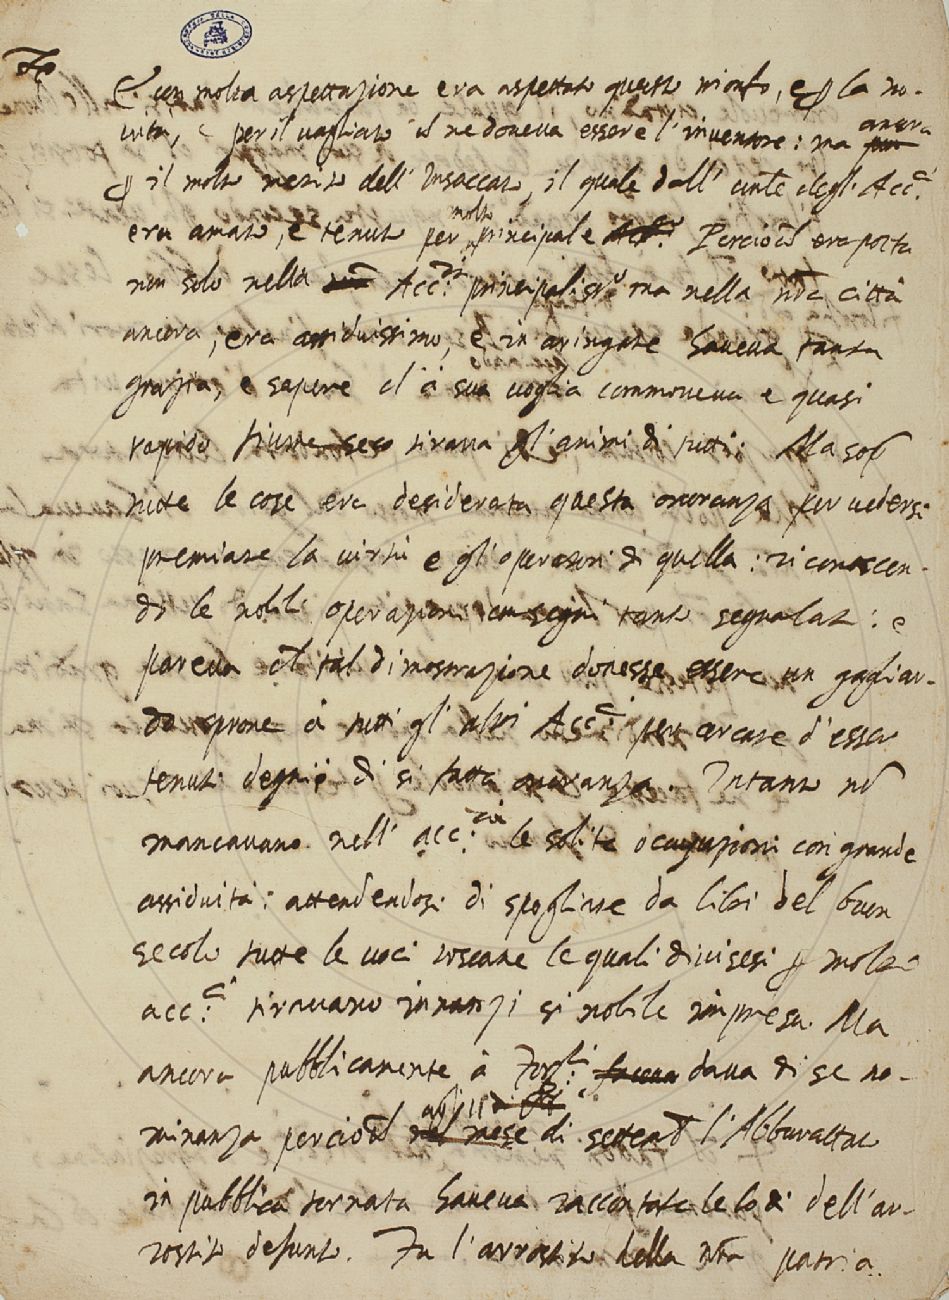 E con molta aspettazione era aspettato questo trionfo, e p la no-
vità, e per il vagliato ch ne doveva essere l'inventore: ma pur ancora
p il molto merito dell' Insaccato, il quale dall' univ.te degli Acc.ci
era amato, e tenuto per molto principale Acc.co Perciochè era posta
non solo nella Acc.a principaliss.o ma nella nra città
ancora, era assiduissimo, e in aringare haveva tanta
grazia, e sapere ch à sua voglia commoveva e quasi
rapido fiume seco tirava gl'animi di tutti. Ma sop
tutte le cose era desiderata questa onoranza per vedersi
premiare la virtù e gl'operatori di quella: riconoscen-
do le nobili operazioni con segni tanto segnalati: e
pareva ch tal dimostrazione dovesse essere un gagliar-
do sprone à tutti gl'altri Acc.ci per cercare d'esser
tenuti degni di si fatta onoranza. Intanto nō
mancavano nell' acc.a le solite occupazioni con grande
assiduità: attendendosi di spogliare da libri del buon
secolo tutte le voci toscane le quali divisesi p molti
acc.ci tiravano innanzi si nobile impresa. Ma
ancora pubblicamente à Zozzi faceva dava di se no-
minanza perciochè nel mese agl'11 di di settemb l'Abburattato
in pubblica tornata haveva raccontate le lodi dell'ar-
rostito defunto. Fu l'arrostito della nra patria